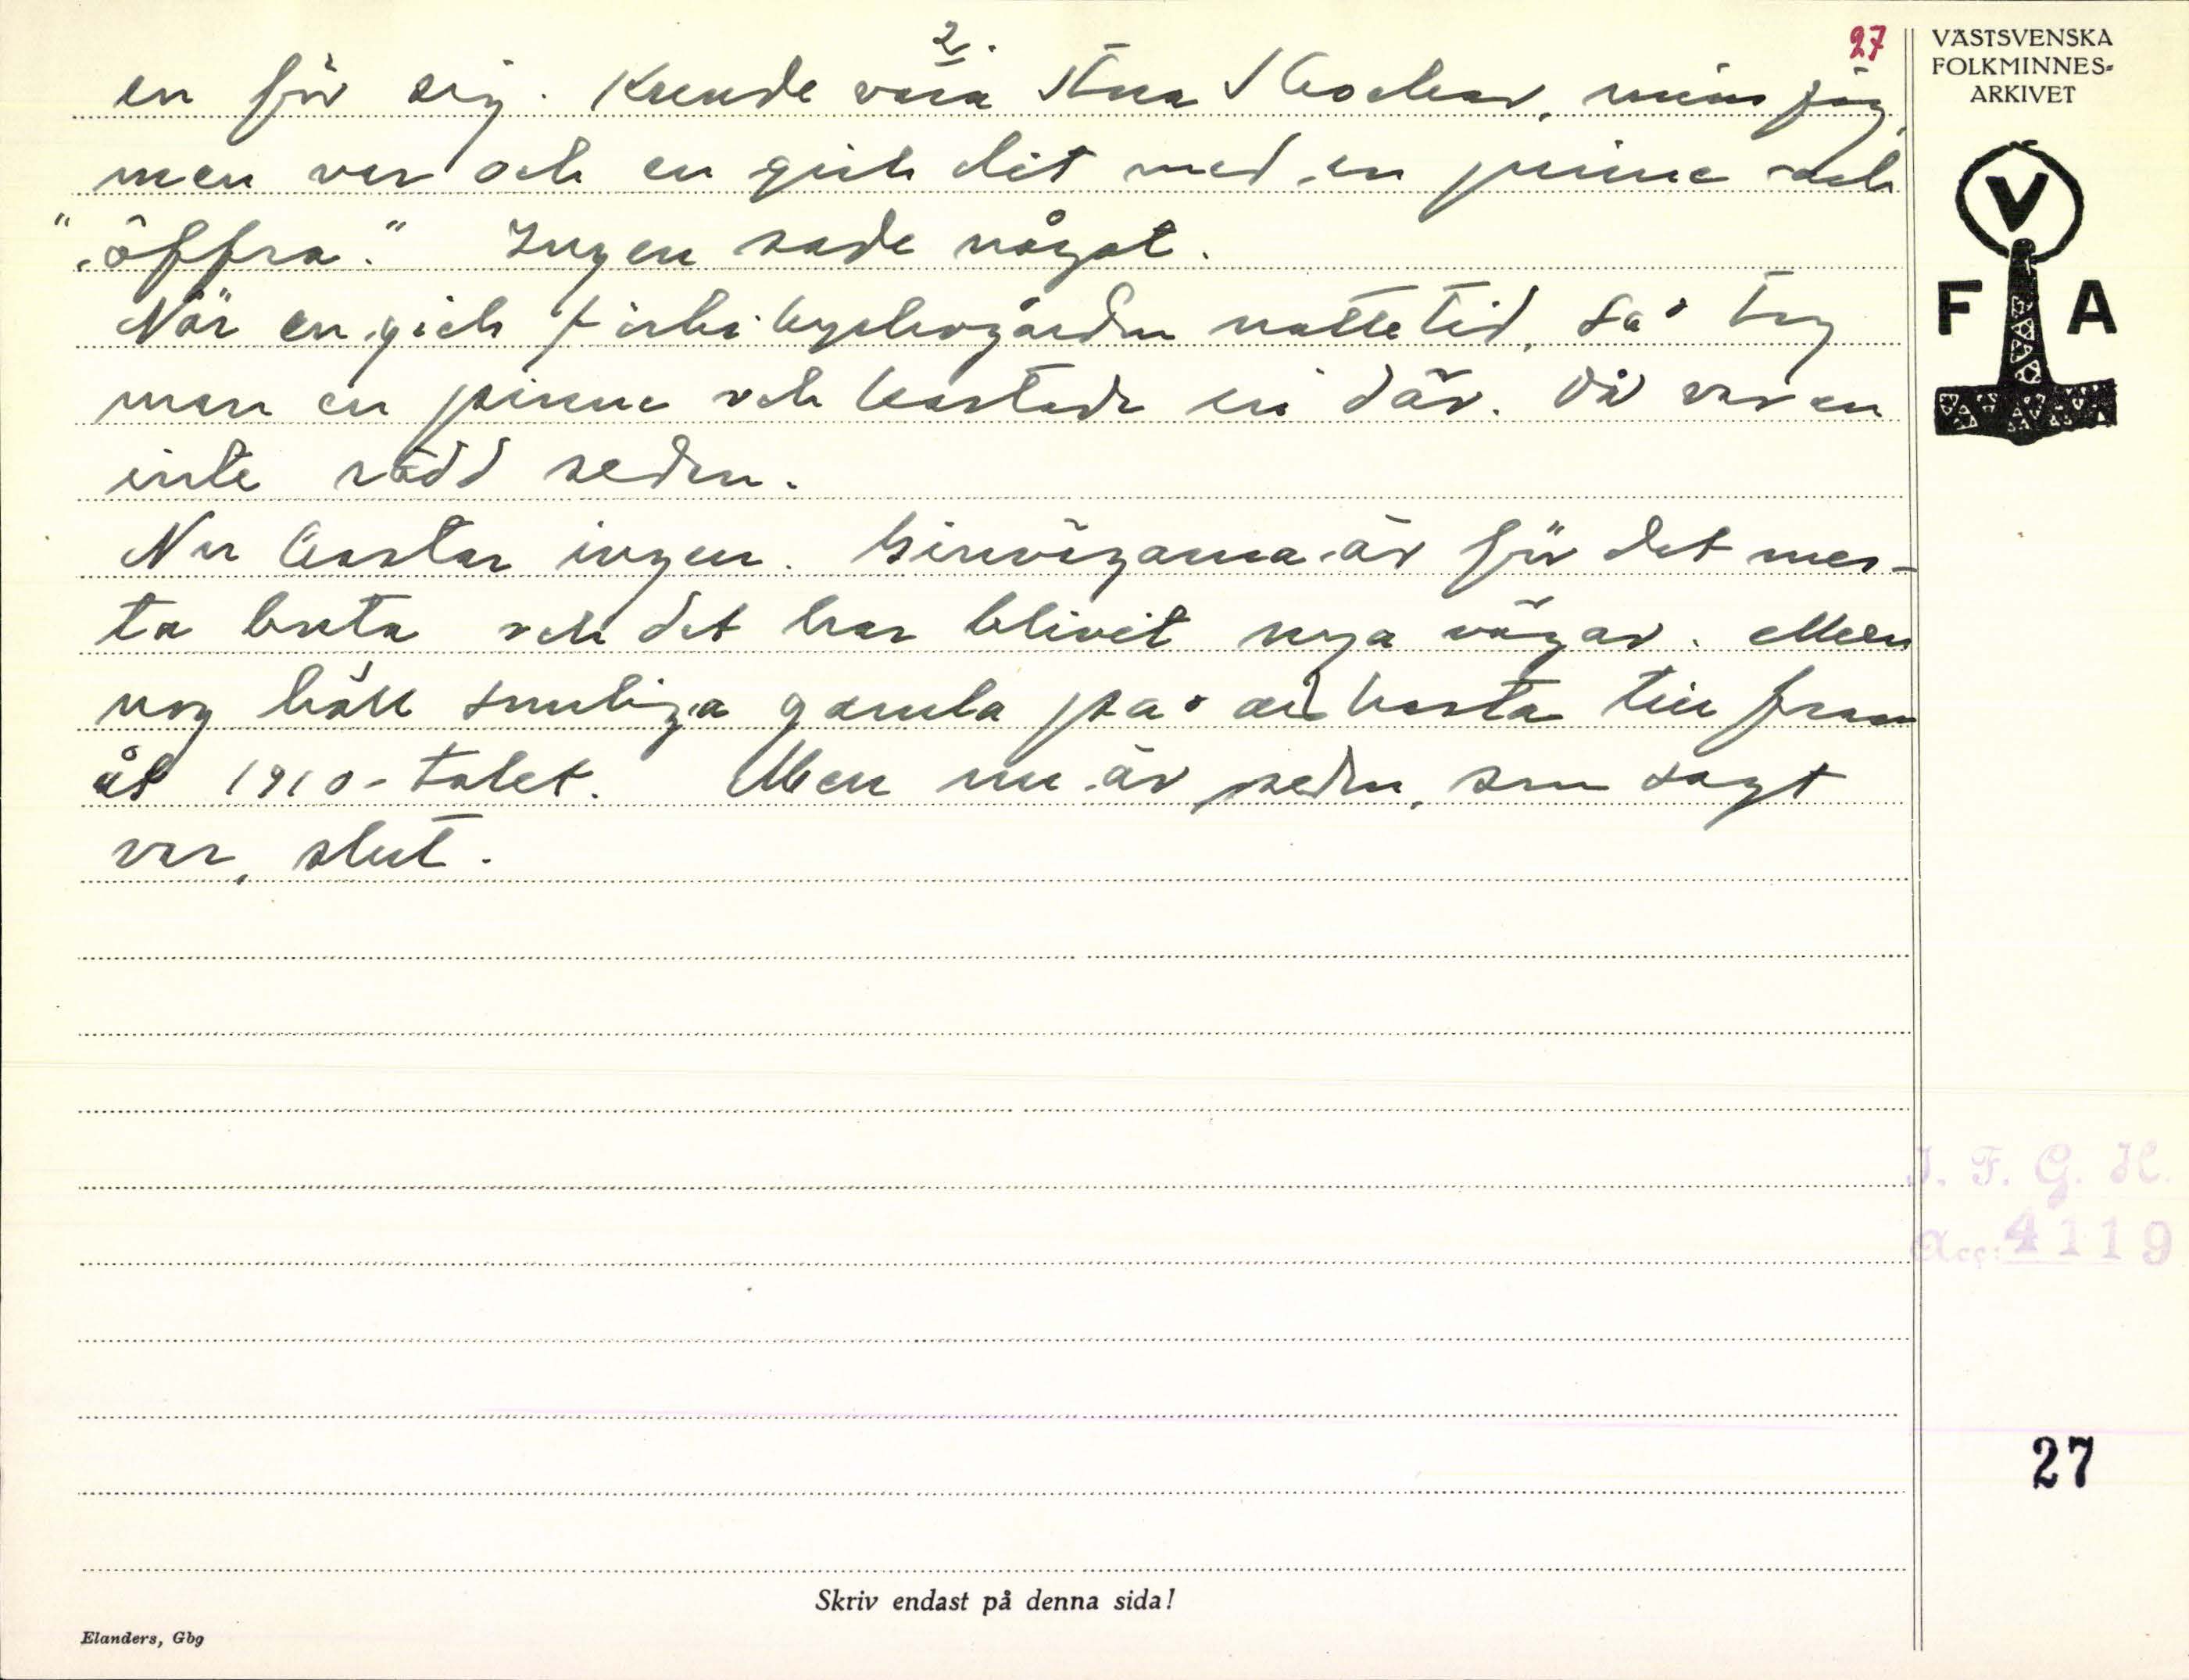 2.
27
en för sig. Kunde vara stora skockar, mins jag,
men var och en gick dit med en pinne och
"öffra." Ingen sade något.
När en gick förbi kyrkogården nattetid, så tog
man en pinne och kastade in där. Då var en
inte rädd sedan.
Nu kastar ingen. Genvägarna är för det mes-
ta borta och det har blivit nya vägar. Men
nog höll somliga gamla på att kasta till fram
åt 1910-talet. Men nu är seden, som sagt
var, slut.
VÄSTSVENSKA
FOLKMINNES-
ARKIVET
V
F A
I. F. G. H.
Acc: 4119
27
Skriv endast på denna sida!
Elanders, Gbg